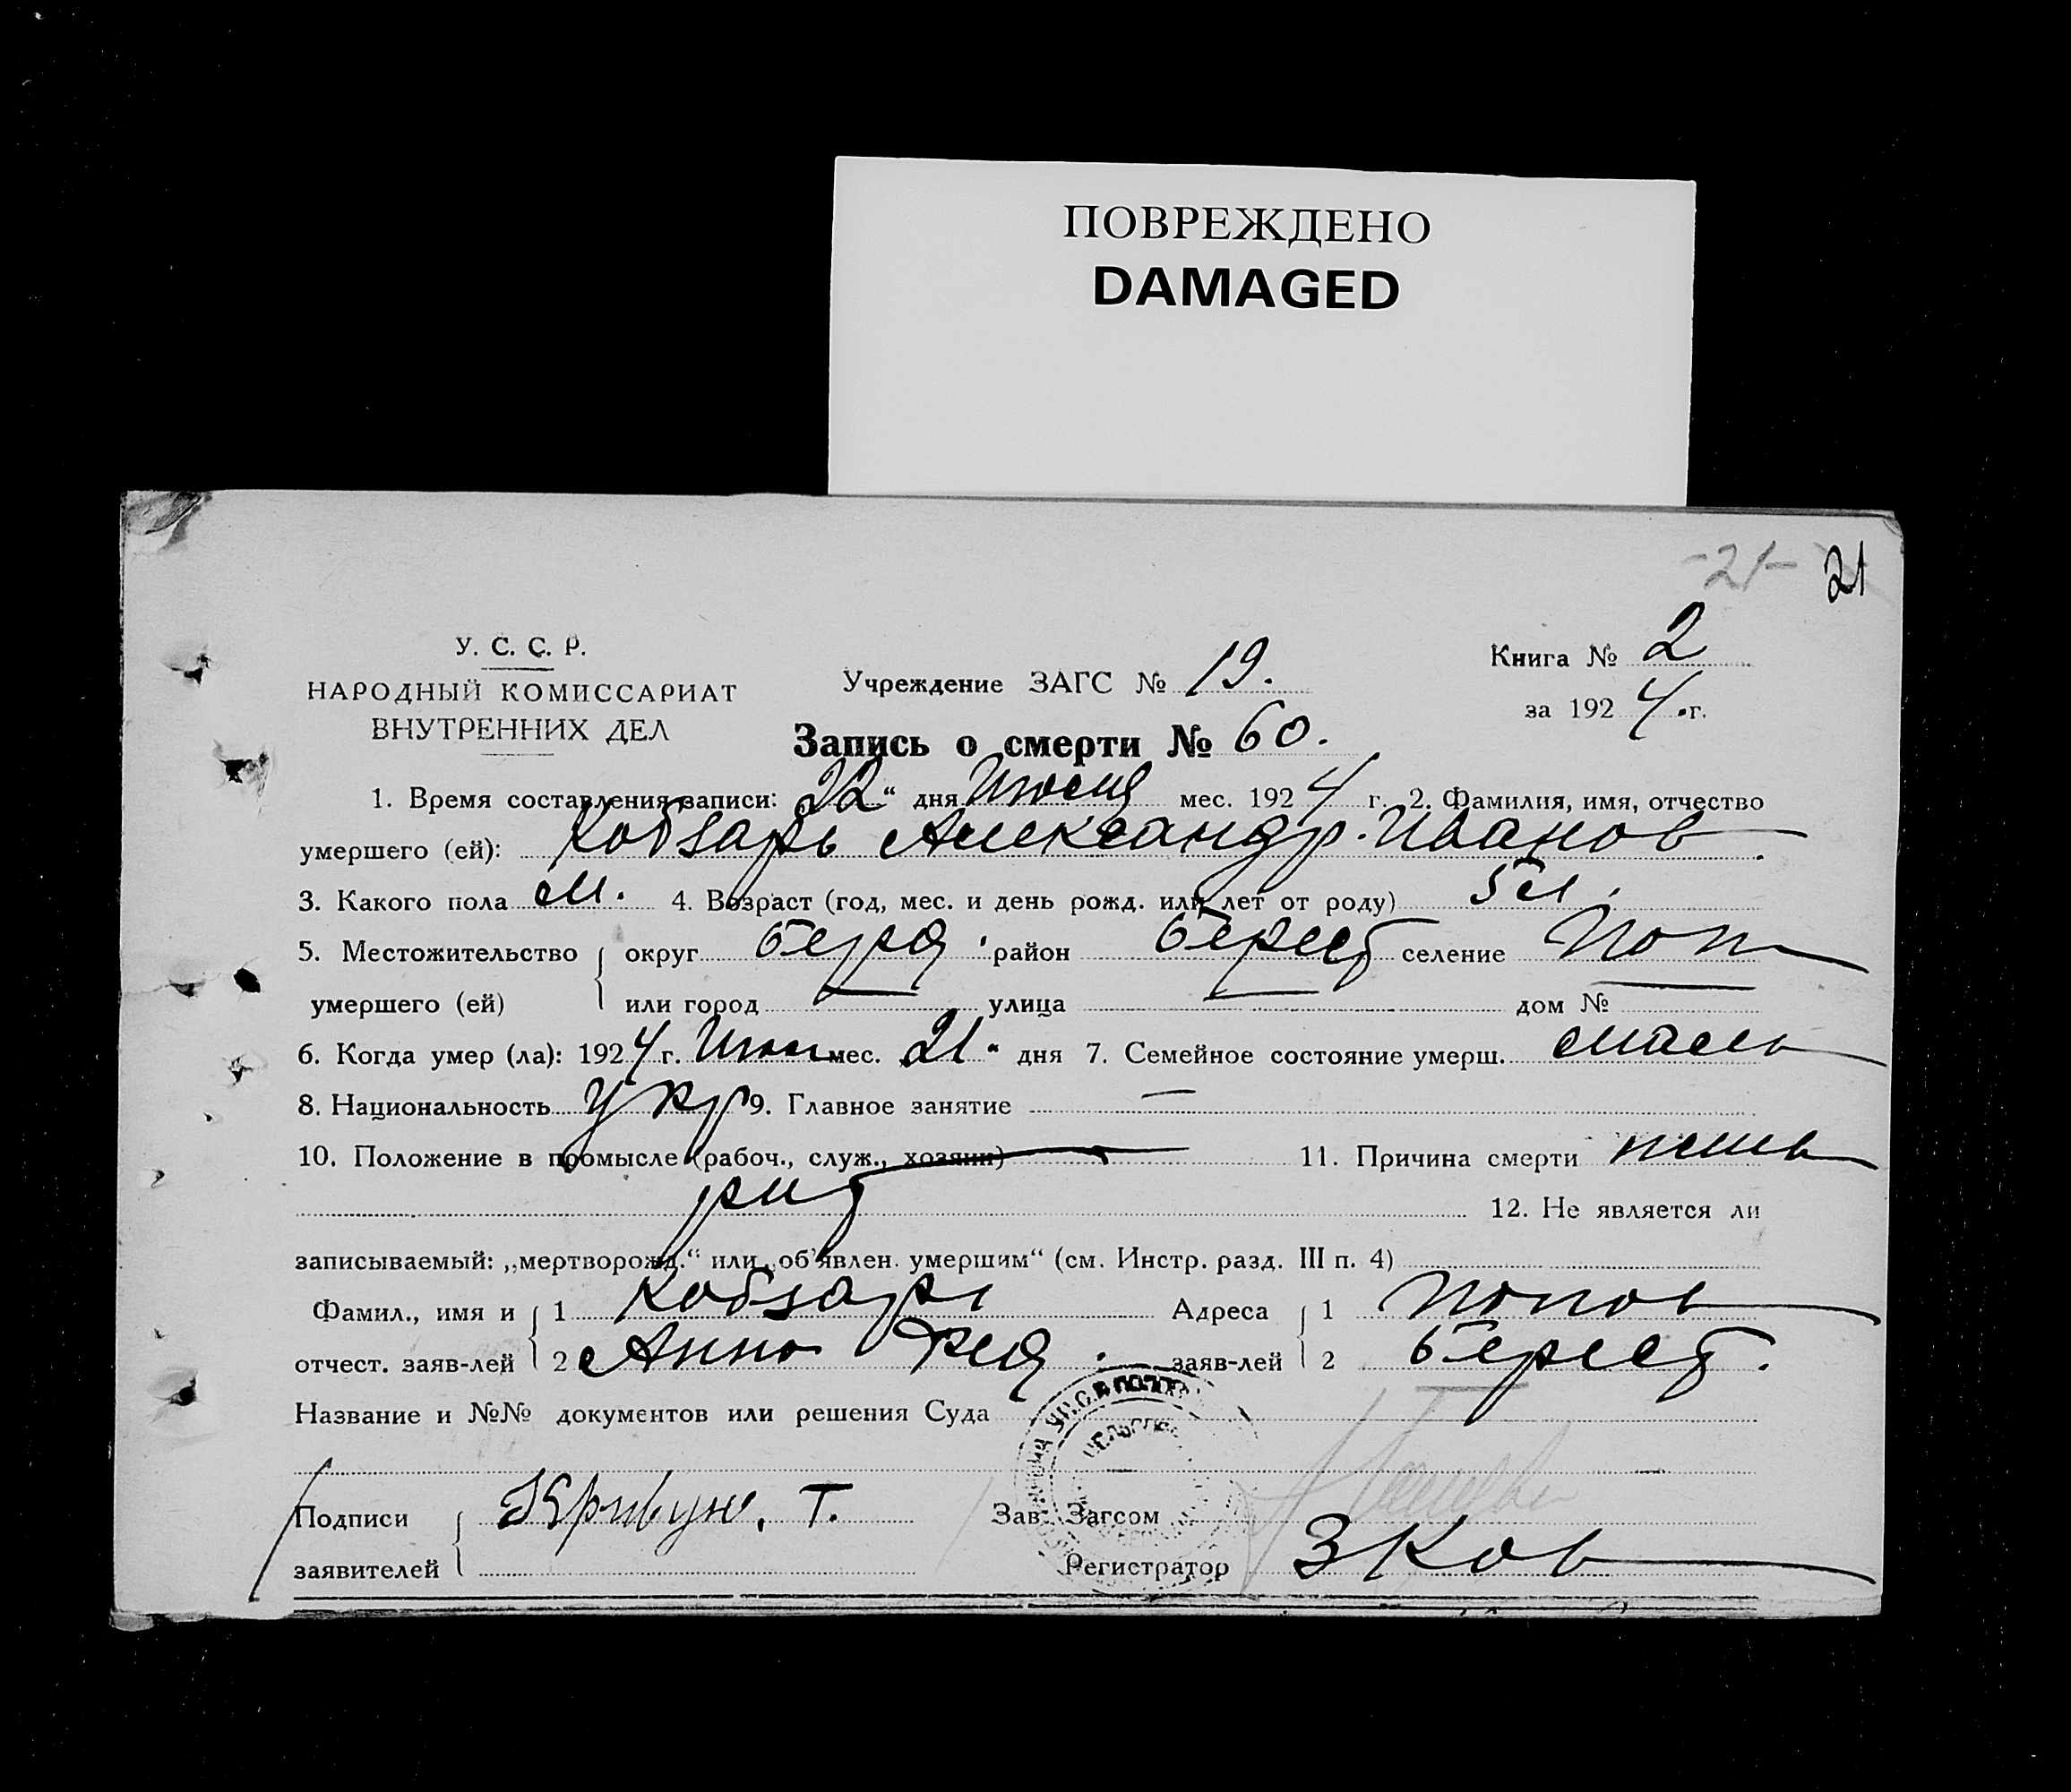 ПОВРЕЖДЕНО
DAMAGED
-21- 21
У. С. С. Р.
НАРОДНЫЙ КОМИССАРИАТ
ВНУТРЕННИХ ДЕЛ
Учреждение ЗАГС № 19.
Книга № 2
за 1924 г.
Запись о смерти № 60.
1. Время составления записи: „22“ дня Июля мес. 1924 г. 2. Фамилия, имя, отчество
умершего (ей): Кобзарь Александр. Иванов
3. Какого пола М. 4. Возраст (год, мес. и день рожд. или лет от роду)
5. Местожительство округ Берд. район Берест селение Поп
умершего (ей) или город — улица — дом № —
6. Когда умер (ла): 1924 г. мес. „21“ дня 7. Семейное состояние умерш.
8. Национальность укр 9. Главное занятие —
10. Положение в промысле (рабоч., служ., хозяин) 11. Причина смерти
12. Не является ли
записываемый: „мертворожд.“ или „об'явлен. умершим“ (см. Инстр. разд. III п. 4)
Фамил., имя и 1 Кобзарь Адреса 1 Попов
отчест. заяв-лей 2 Анна Фед. заяв-лей 2 Берест.
Название и №№ документов или решения Суда
Подписи Кривун. Т. Зав. Загсом
заявителей Регистратор ЗКов